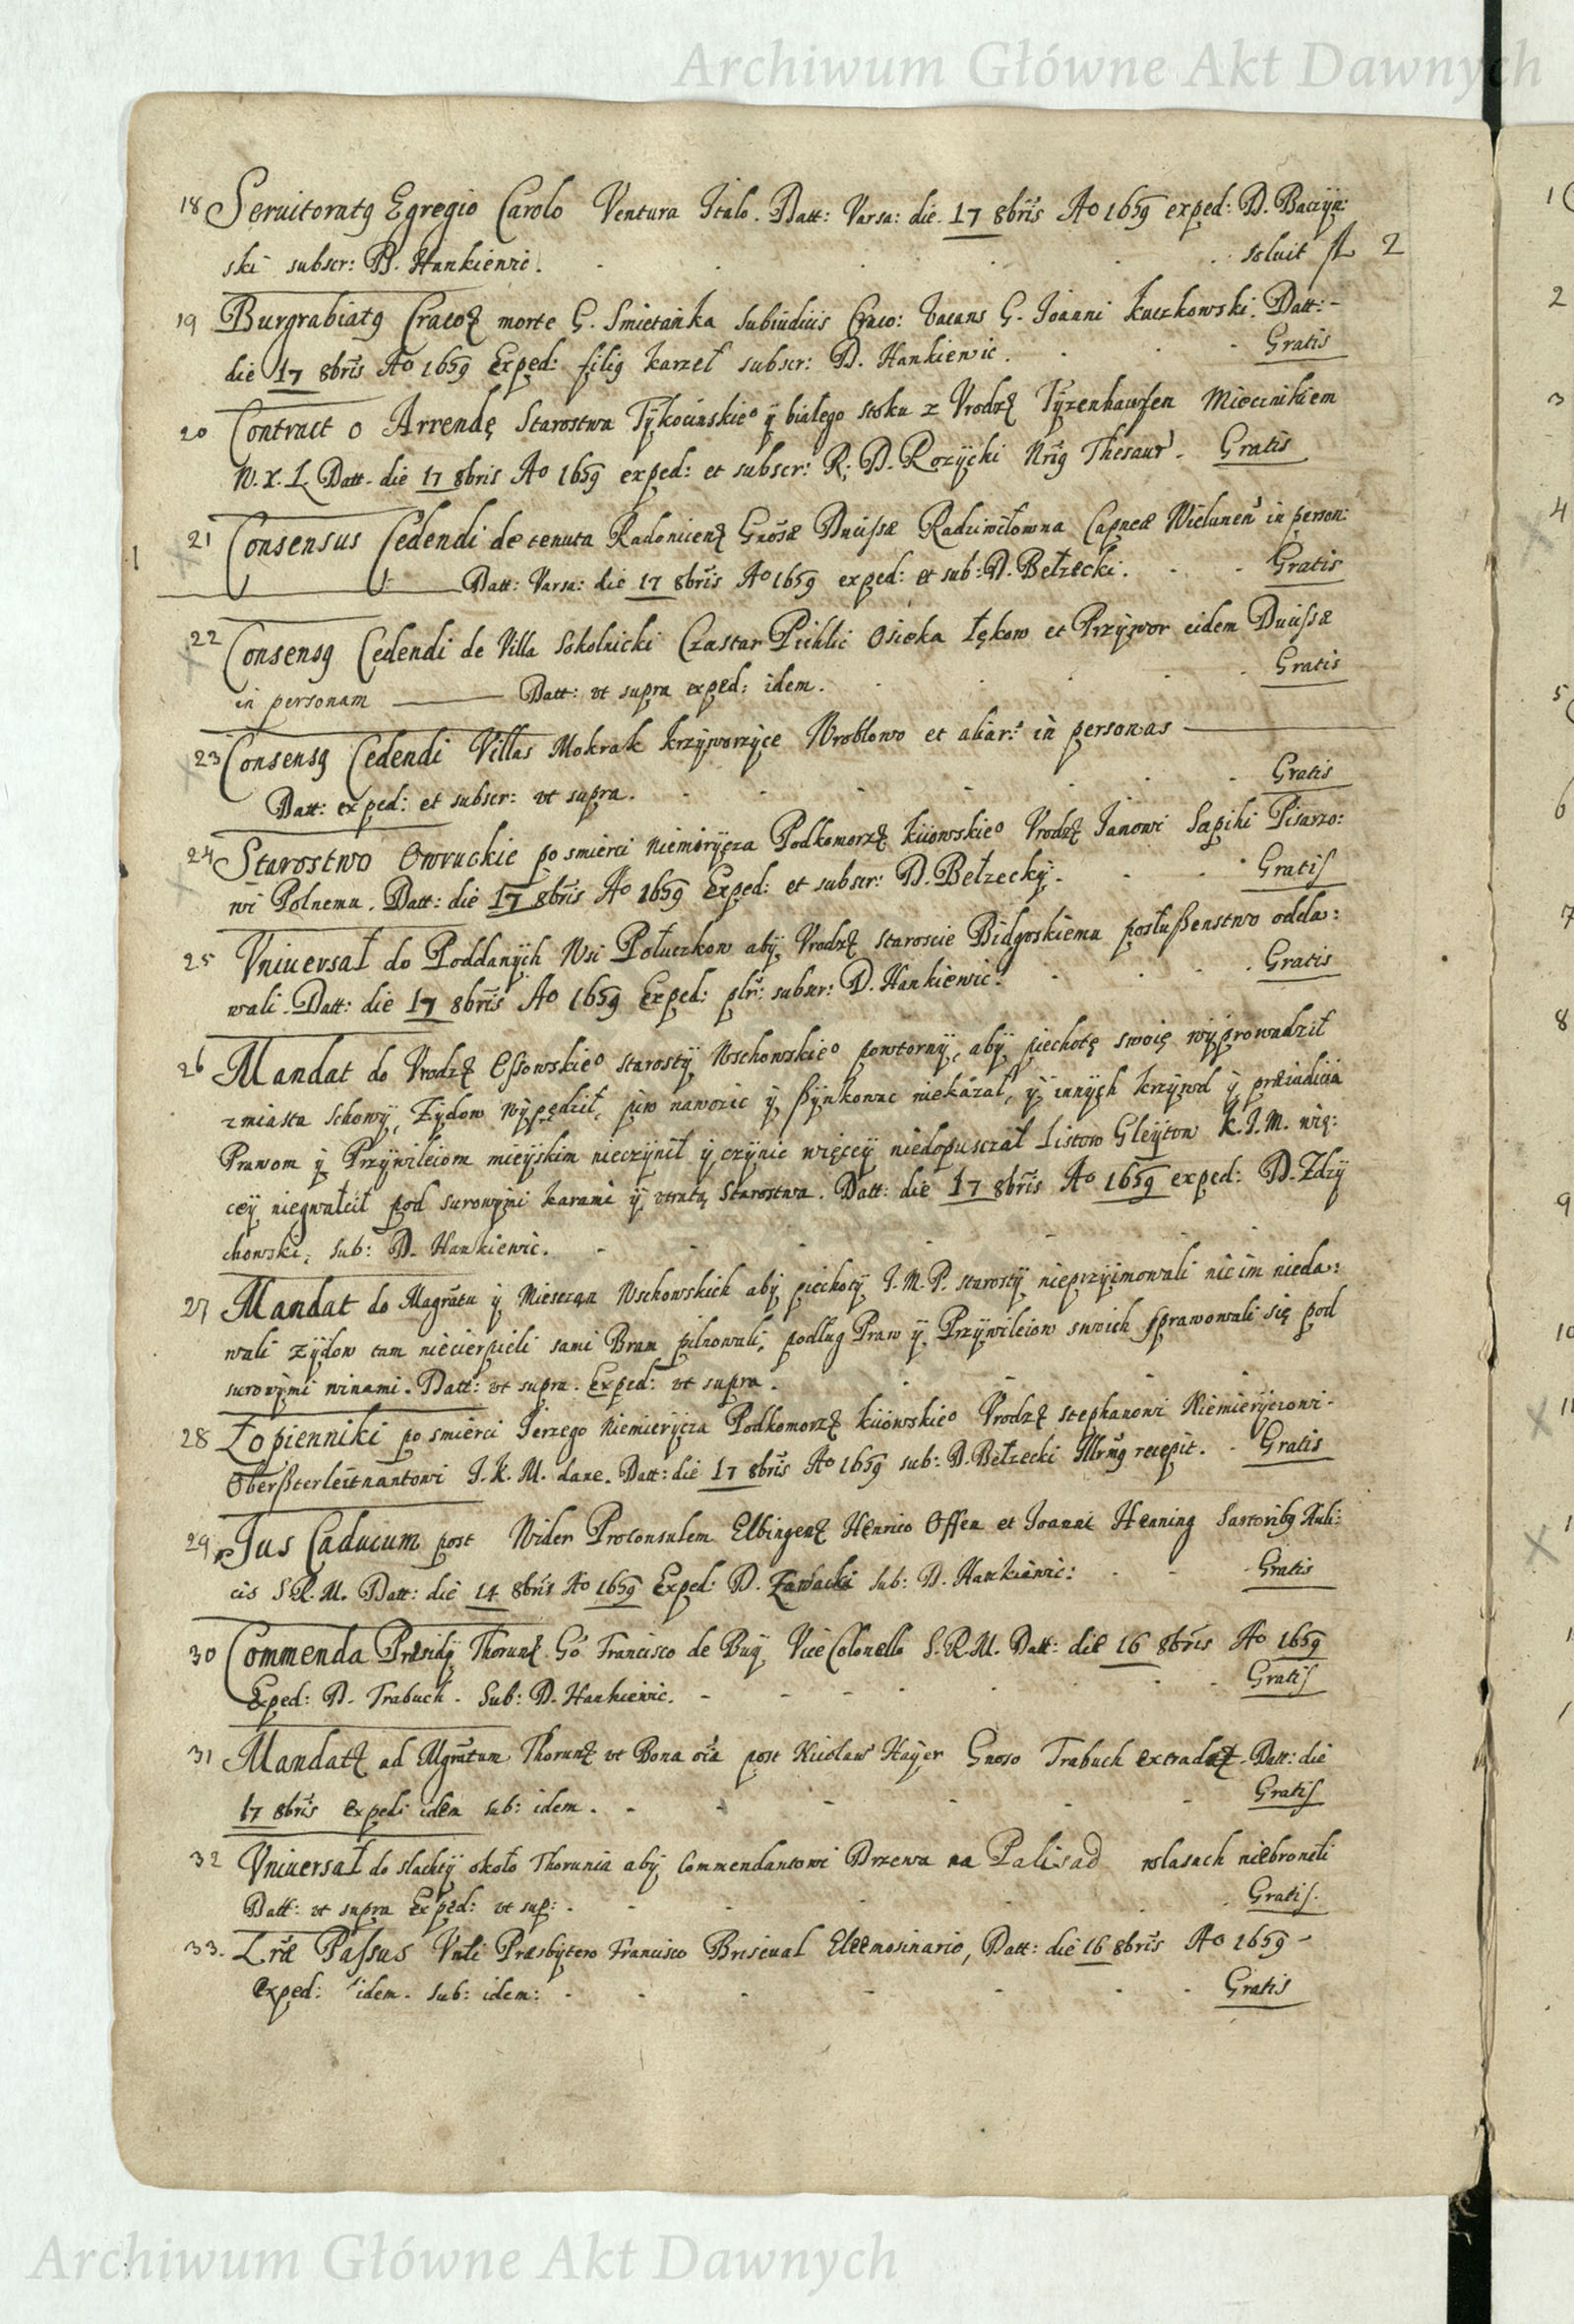 Archiwum Główne Akt Dawnych
18 Seruitoratq Egregio Carolo Ventura Italo. Datt: Varsa: die. 17 8bris Ao 1659 exped: D. Baczÿn:
ski subscr: D. Hankiewic. soluit fl 2
19 Burgrabiatq Cracoę morte G. Smietanka Subiudicis Craco: Vacans G. Joanni Kuczkowski. Datt:-
die 17 8bris Ao 1659 Exped: filiq Karzeł subscr: D. Hankiewic. Gratis
20 Contract o Arrendę Starostwa Tÿkocinskieo ÿ białego stoku z Vrodzę Tÿzenhawzen Miecznikiem
W. X. L. Datt. die 17 8bris Ao 1659 exped: et subscr: R: D. Rozÿcki Nriq Thesaur. Gratis
21 Consensus Cedendi de tenuta Gnosæ Dnissæ Radziwiłowna Capneæ Wielunen in person:
Datt: Varsa: die 17 8bris Ao 1659 exped: et sub: D. Bełzecki. Gratis
22 Consensq Cedendi de Villa Sokolnicki Czastar Pichlic Osieka Łękow et Przÿwor eidem Dnissæ
in personam Datt: vt supra exped: idem. Gratis
23 Consensq Cedendi Villas Mokrak Krzÿworzÿce Wroblowo et aliar: in personas
Datt: exped: et subscr: vt supra. Gratis
24 Starostwo Owruckie po smierci Niemierÿcza Podkomorzę Kiiowskieo Vrodzę Janowi Sapihi Pisarzo:
wi Polnemu. Datt: die 17 8bris Ao 1659 Exped: et subscr: D. Bełzeckÿ. Gratis
25 Vniuersał do Poddanÿch Wsi Połuczkow abÿ Vrodzę staroscie Bidgoskiemu posłußenstwo odda:
wali. Datt: die 17 8bris Ao 1659 Exped: plr: subscr: D. Hankiewic. Gratis
26 Mandat do Vrodzę Essowskieo starostÿ Wschowskieo powtornÿ, abÿ piechotę swoię wÿprowadził
zmiasta Schowÿ, Zÿdow wÿpędził, piw nawozic ÿ ßÿnkowac niekazał, ÿ innÿch Krzÿwd ÿ præiudicia
Prawom ÿ Przÿwileiom mieÿskim nieczÿnił ÿ czÿnic więceÿ niedopusczał Listow Gleÿtow K. J. M. wię:
ceÿ niegwałcił pod surowÿmi karami ÿ vtratą Starostwa. Datt: die 17 8bris Ao 1659 exped: D. Zdzÿ
chowski, sub: D. Hankiewic.
27 Mandat do Magratu ÿ Miesczan Wschowskich abÿ piechotÿ J. M. P. starostÿ nieprzÿimowali nic im nieda:
wali zÿdow tam niecierpieli sami Bram pilnowali, podług Praw ÿ Przÿwileiow swoich sprawowali się pod
surowÿmi winami. Datt: vt supra. Exped: vt supra.
28 Łopienniki po smierci Jerzego Niemierÿcza Podkomorzę Kiiowskieo Vrodzę Stephanowi Niemierÿczowi-
Oberßterleitnantowi J. K. M. dane. Datt: die 17 8bris Ao 1659 sub: D. Bełzecki recepit. Gratis
29 Jus Caducum post Wider Proconsulem Elbingenę Henrico Offen et Joanni Henning Sartoribq Auli:
cis S. R. M. Datt: die 14 8bris Ao 1659 Exped: D. Zawacki sub: D. Hankiewic: Gratis
30 Commenda Præsidÿ Thorunę Go Francisco de Buÿ Vice Colonello S. R. M. Datt: die 16 8bris Ao 1659
Exped: D. Trabuch. Sub: D. Hankiewic. Gratis
31 Mandatę ad Mgratum Thorunę vt Bona oia post Nicolaum Haÿer Gnoso Trabuch extradat. Datt: die
17 8bris exped: idem sub: idem. Gratis
32 Vniuersał do slachtÿ około Thorunia abÿ Commendantowi Drzewa na Palisad wlasach niebronili
Datt: vt supra Exped: vt sup: Gratis.
33. Lræ Passus Vnli Præsbÿtero Francisco Briseual Eleemosinario, Datt: die 16 8bris Ao 1659-
exped: idem. sub: idem: Gratis
Archiwum Główne Akt Dawnych